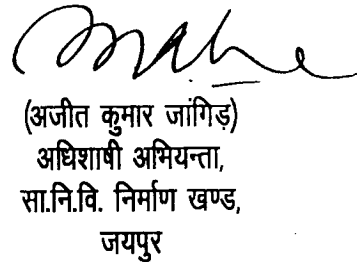 (अजीत कुमार जांगिड़)
अधिशाषी अभियन्ता,
सा.नि.वि. निर्माण खण्ड,
जयपुर